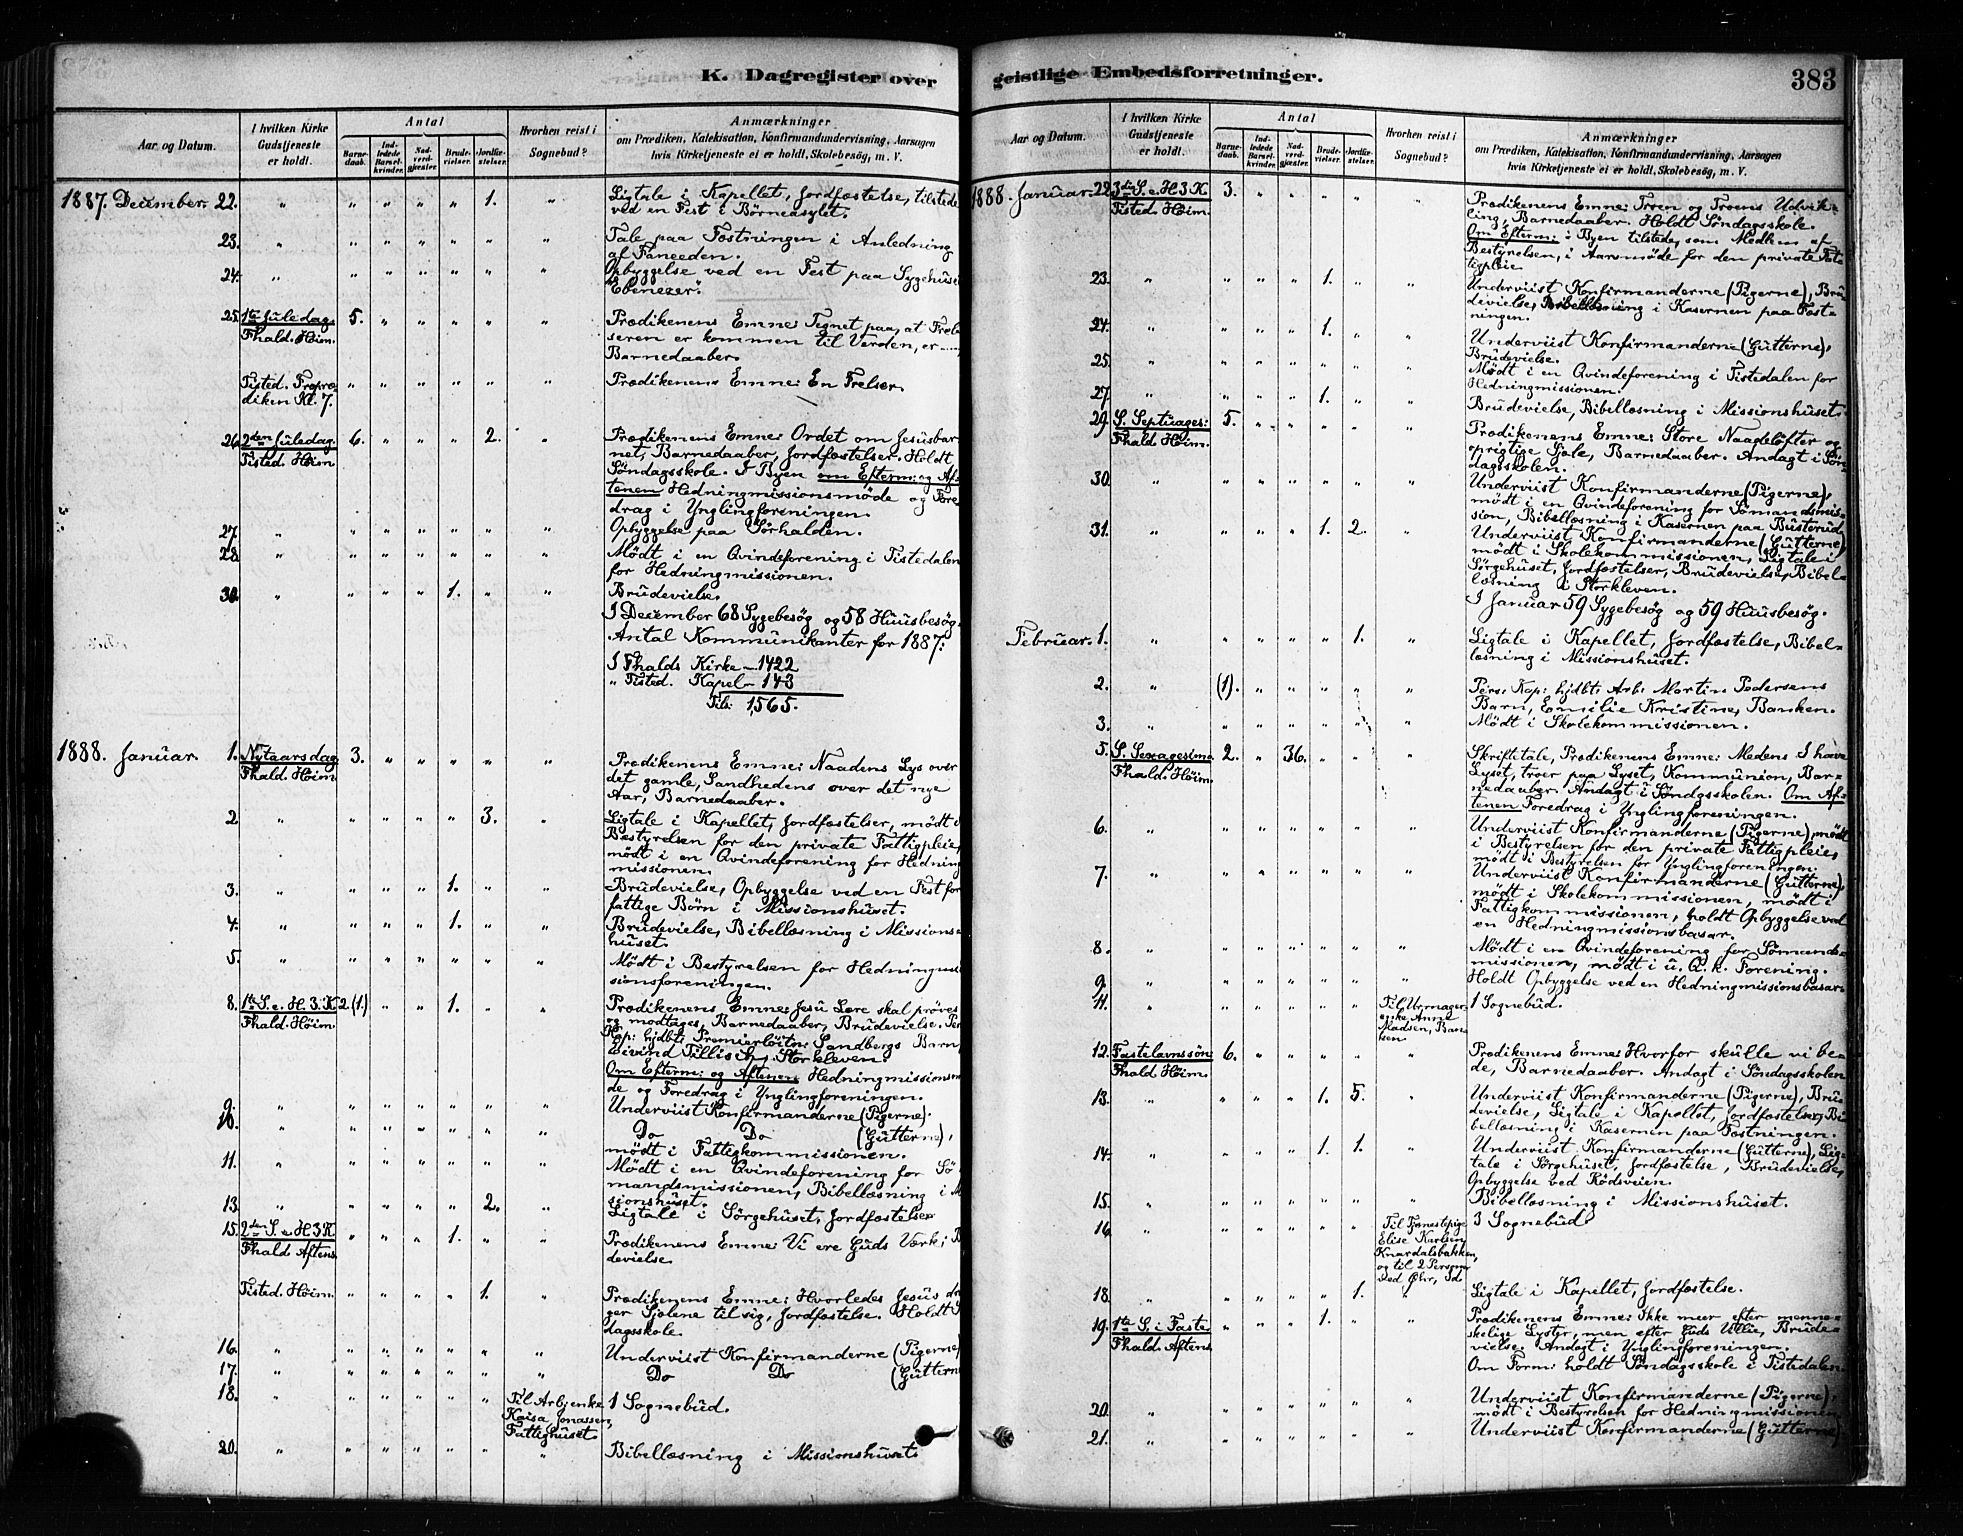 K. Dagregister over
geistlige Embedsforretninger.
383
Aar og Datum.
I hvilken Kirke
Gudstjeneste
er holdt.
Antal
Barne-
daab.
Ind-
ledede
Barsel-
kvinder.
Nad-
verd-
gjæster.
Brude-
vielser.
Jordfæ-
stelser.
Hvorhen reist i
Sognebud?
Anmærkninger
om Prædiken, Katekisation, Konfirmandundervisning, Aarsagen
hvis Kirketjeneste ei er holdt, Skolebesøg, m. V.
1887. December. 22. " " " " " 1. " Ligtale i Kapellet, Jordfæstelse, tilstede
ved en Fest i Børneasylet.
23. " " " " " " " Tale paa Fæstningen i Anledning
af Faneeden.
24. " " " " " " " Opbyggelse ved en Fest paa Sygehuset
"Ebenezer".
25. 1te Juledag. 5. " " " " " Prædikenens Emne: Tegnet paa, at Frel-
Fhald. Höim. seren er kommen til Verden, er
Barnedaaber.
Tisted. Fropræ- " " " " " " Prædikenens Emne: En Frelser.
diken Kl. 7.
26. 2den Juledag. 6. " " " 2. " Prædikenens Emne: Ordet om Jesusbar-
Tisted. Höim. net, Barnedaaber, Jordfæstelser. Holdt
Søndagsskole. I Byen om Efterm: og Af-
tenen Hedningmissionsmøde og Fore-
drag i Ynglingforeningen.
27. " " " " " " " Opbyggelse paa Sørhalden.
28. " " " " " " " Mødt i en Qvindeforening i Tistedalen
for Hedningmissionen.
30. " " " " 1. " " Brudevielse.
I December 68 Sygebesøg og 58 Huusbesøg.
Antal Kommunikanter for 1887:
I Fhalds Kirke – 1422
" Tisted. Kapel – 143
Tils: 1,565.
1888. Januar. 1. Nytaarsdag. 3. " " " " " Prædikenens Emne: Naadens Lys over
Fhald. Höim. det gamle, Sandhedens over det nye
Aar, Barnedaaber.
2. " " " " " 3. " Ligtale i Kapellet, Jordfæstelser, mødt i
Bestyrelsen for den private Fattigpleie,
mødt i en Qvindeforening for Hedning-
missionen.
3. " " " " 1. " " Brudevielse, Opbyggelse ved en Fest for
fattige Børn i Missionshuset.
4. " " " " 1. " " Brudevielse, Bibellæsning i Missions-
huset.
5. " " " " " " " Mødt i Bestyrelsen for Hedningmis-
sionsforeningen.
8. 1te S. e. H. 3. K. 2 (1.) " " 1. " " Prædikenens Emne: Jesu Lære skal prøves
Fhald. Höim. og modtages, Barnedaaber, Brudevielse. Pers:
Kap: hjdbt: Premierløitn: Sandbergs Barn,
Eivind Tillisch, Storkleven.
Om Efterm: og Aftenen Hedningmissionsmø-
de og Foredrag i Ynglingforeningen.
9. " " " " " " " Underviist Konfirmanderne (Pigerne).
10. " " " " " " " Do Do (Gutterne),
mødt i Fattigkommissionen.
11. " " " " " " " Mødt i en Qvindeforening for Sø-
mandsmissionen, Bibellæsning i Mis-
sionshuset.
13. " " " " " 2. " Ligtale i Sørgehuset, Jordfæstelser
15. 2den S. e. H 3 K. " " " 1. " " Prædikenens Emne: Vi ere Guds Værk; Bru-
Fhald. Aftens. devielse
Tisted. Höim. " " " " 1. " Prædikenens Emne: Hvorledes Jesus dra-
ger Sjælene til sig, Jordfæstelse. Holdt Søn-
dagsskole.
16. " " " " " " " Underviist Konfirmanderne (Pigerne)
17. " " " " " " " Do Do (Gutterne
18. " " " " " " Til Arbjenke 1 Sognebud.
Kaisa Jonassen,
Fattighuset.
20. " " " " " " " Bibellæsning i Missionshuset.
Aar og Datum.
I hvilken Kirke
Gudstjeneste
er holdt.
Antal
Barne-
daab.
Ind-
ledede
Barsel-
kvinder.
Nad-
verd-
gjæster.
Brude-
vielser.
Jordfæ-
stelser.
Hvorhen reist i
Sognebud?
Anmærkninger
om Prædiken, Katekisation, Konfirmandundervisning, Aarsagen
hvis Kirketjeneste ei er holdt, Skolebesøg, m. V.
1888. Januar. 22. 3die S. e. H 3 K. 3. " " " " " Prædikenens Emne: Troen og Troens Udvik-
Tisted. Höim. ling, Barnedaaber. Holdt Søndagsskole.
Om Efterm: i Byen tilstede, som Medlem af
Bestyrelsen, i Aarsmøde for den private Fat-
tigpleie
23. " " " " 1. " " Underviist Konfirmanderne (Pigerne), Bru-
devielse, Bibellæsning i Kasernen paa Fæst-
ningen.
24. " " " " 1. " " Underviist Konfirmanderne (Gutterne),
Brudevielse.
25. " " " " " " " Mødt i en Qvindeforening i Tistedalen for
Hedningmissionen.
27. " " " " 1. " " Brudevielse, Bibellæsning i Missionshuset.
29. S. Septuages: 5. " " " " " Prædikenens Emne: Store Naadeløfter og
Fhald Höim. oprigtige Sjæle, Barnedaaber. Andagt i Søn-
dagsskolen.
30. " " " " " " " Underviist Konfirmanderne (Pigerne),
mødt i en Qvindeforening for Sømandsmis-
sion, Bibellæsning i Kasernen paa Busterud.
31. " " " " 1. 2. " Underviist Konfirmanderne (Gutterne)
mødt i Skolekommissionen, Ligtale i
Sørgehuset, Jordfæstelser, Brudevielse, Bibel-
læsning i Storkleven.
I Januar 59 Sygebesøg og 59 Huusbesøg.
Februar. 1. " " " " " 1. " Ligtale i Kapellet, Jordfæstelse, Bibel-
læsning i Missionshuset.
2. " (1). " " " " " Pers: Kap: hjdbt: Arb: Martin Pedersens
Barn, Emilie Kristine, Banken.
3. " " " " " " " Mødt i Skolekommissionen.
5. S. Sexagesima 2. " 36. " " " Skriftetale, Prædikenens Emne: Medens I have
Fhald. Höim. Lyset, troer paa Lyset, Kommunion, Bar-
nedaaber. Andagt i Søndagsskolen. Om Af-
tenen Foredrag i Ynglingforeningen.
6. " " " " " " " Underviist Konfirmanderne (Pigerne), mødt
i Bestyrelsen for den private Fattigpleie,
mødt i Bestyrelsen for Ynglingforeningen.
7. " " " " " " " Underviist Konfirmanderne (Gutterne),
mødt i Skolekommissionen, mødt i
Fattigkommissionen, holdt Opbyggelse ved
en Hedningmissionsbasar.
8. " " " " " " " Mødt i en Qvindeforening for Sømands-
missionen, mødt i u. Q. k. Forening.
9. " " " " " " " Holdt Opbyggelse ved en Hedningmissionsbasar.
11. " " " " " " Til Urmager- 1 Sognebud.
enke, Anne
Madsen, Ban-
ken.
12. Fastelavnssøn: 6. " " " " " Prædikenens Emne: Hvorfor skulle vi be-
Fhald Höim. de, Barnedaaber. Andagt i Søndagsskolen
13. " " " " 1. 5. " Underviist Konfirmanderne (Pigerne), Bru-
devielse, Ligtale i Kapellet, Jordfæstelser, Bi-
bellæsning i Kasernen paa Fæstningen.
14. " " " " 1. 1. " Underviist Konfirmanderne (Gutterne), Lig-
tale i Sørgehuset, Jordfæstelse, Brudevielse,
Opbyggelse ved Rødsveien.
15. " " " " " " " Bibellæsning i Missionshuset.
16. " " " " " " Til Tjenestepige 3 Sognebud.
Elise Karlsen,
Knardalsbakken,
og til 2 Personer
ved Øhr, Id
18. " " " " " 1. " Ligtale i Kapellet, Jordfæstelse.
19. 1te S. i Faste. " " " 1. " " Prædikenens Emne: Ikke meer efter menne-
Fhald. Aftens. skelige Lyster, men efter Guds Villie, Brude-
vielse. Andagt i Ynglingforeningen.
Om Form: holdt Søndagsskole i Tistedalen.
20. " " " " " " " Underviist Konfirmanderne (Pigerne),
mødt i Bestyrelsen for Hedningmissionen
21. " " " " " " " Underviist Konfirmanderne (Gutterne)